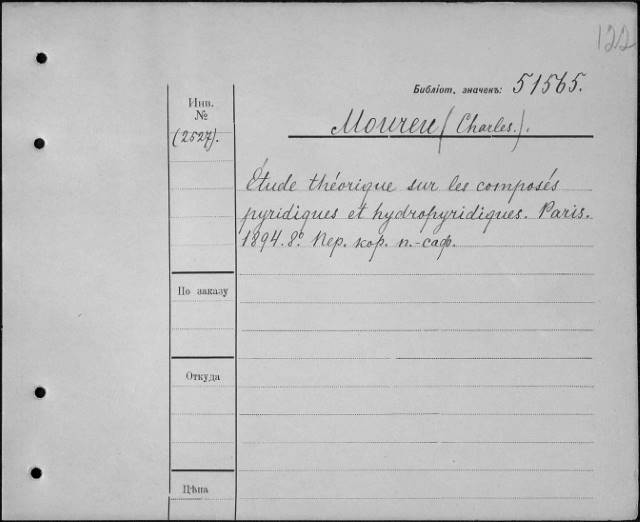 122
Библіот. значенъ: 51565.
Инв.
№
(2527).
Moureu (Charles.).
Étude théorique sur les composés
pyridiques et hydropyridiques. Paris.
1894. 8º. Пер. кор. п.-саф.
По заказу
Откуда
Цѣна